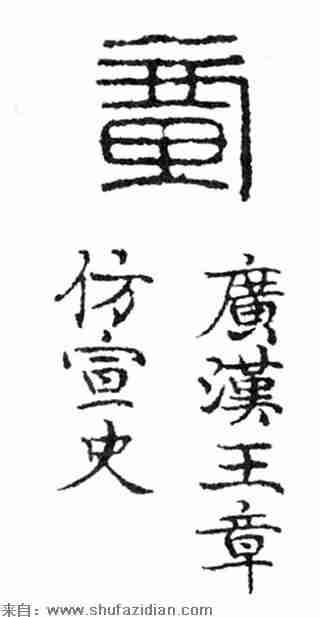 廣漢王章
仿宣史
来自：www.shufazidian.com